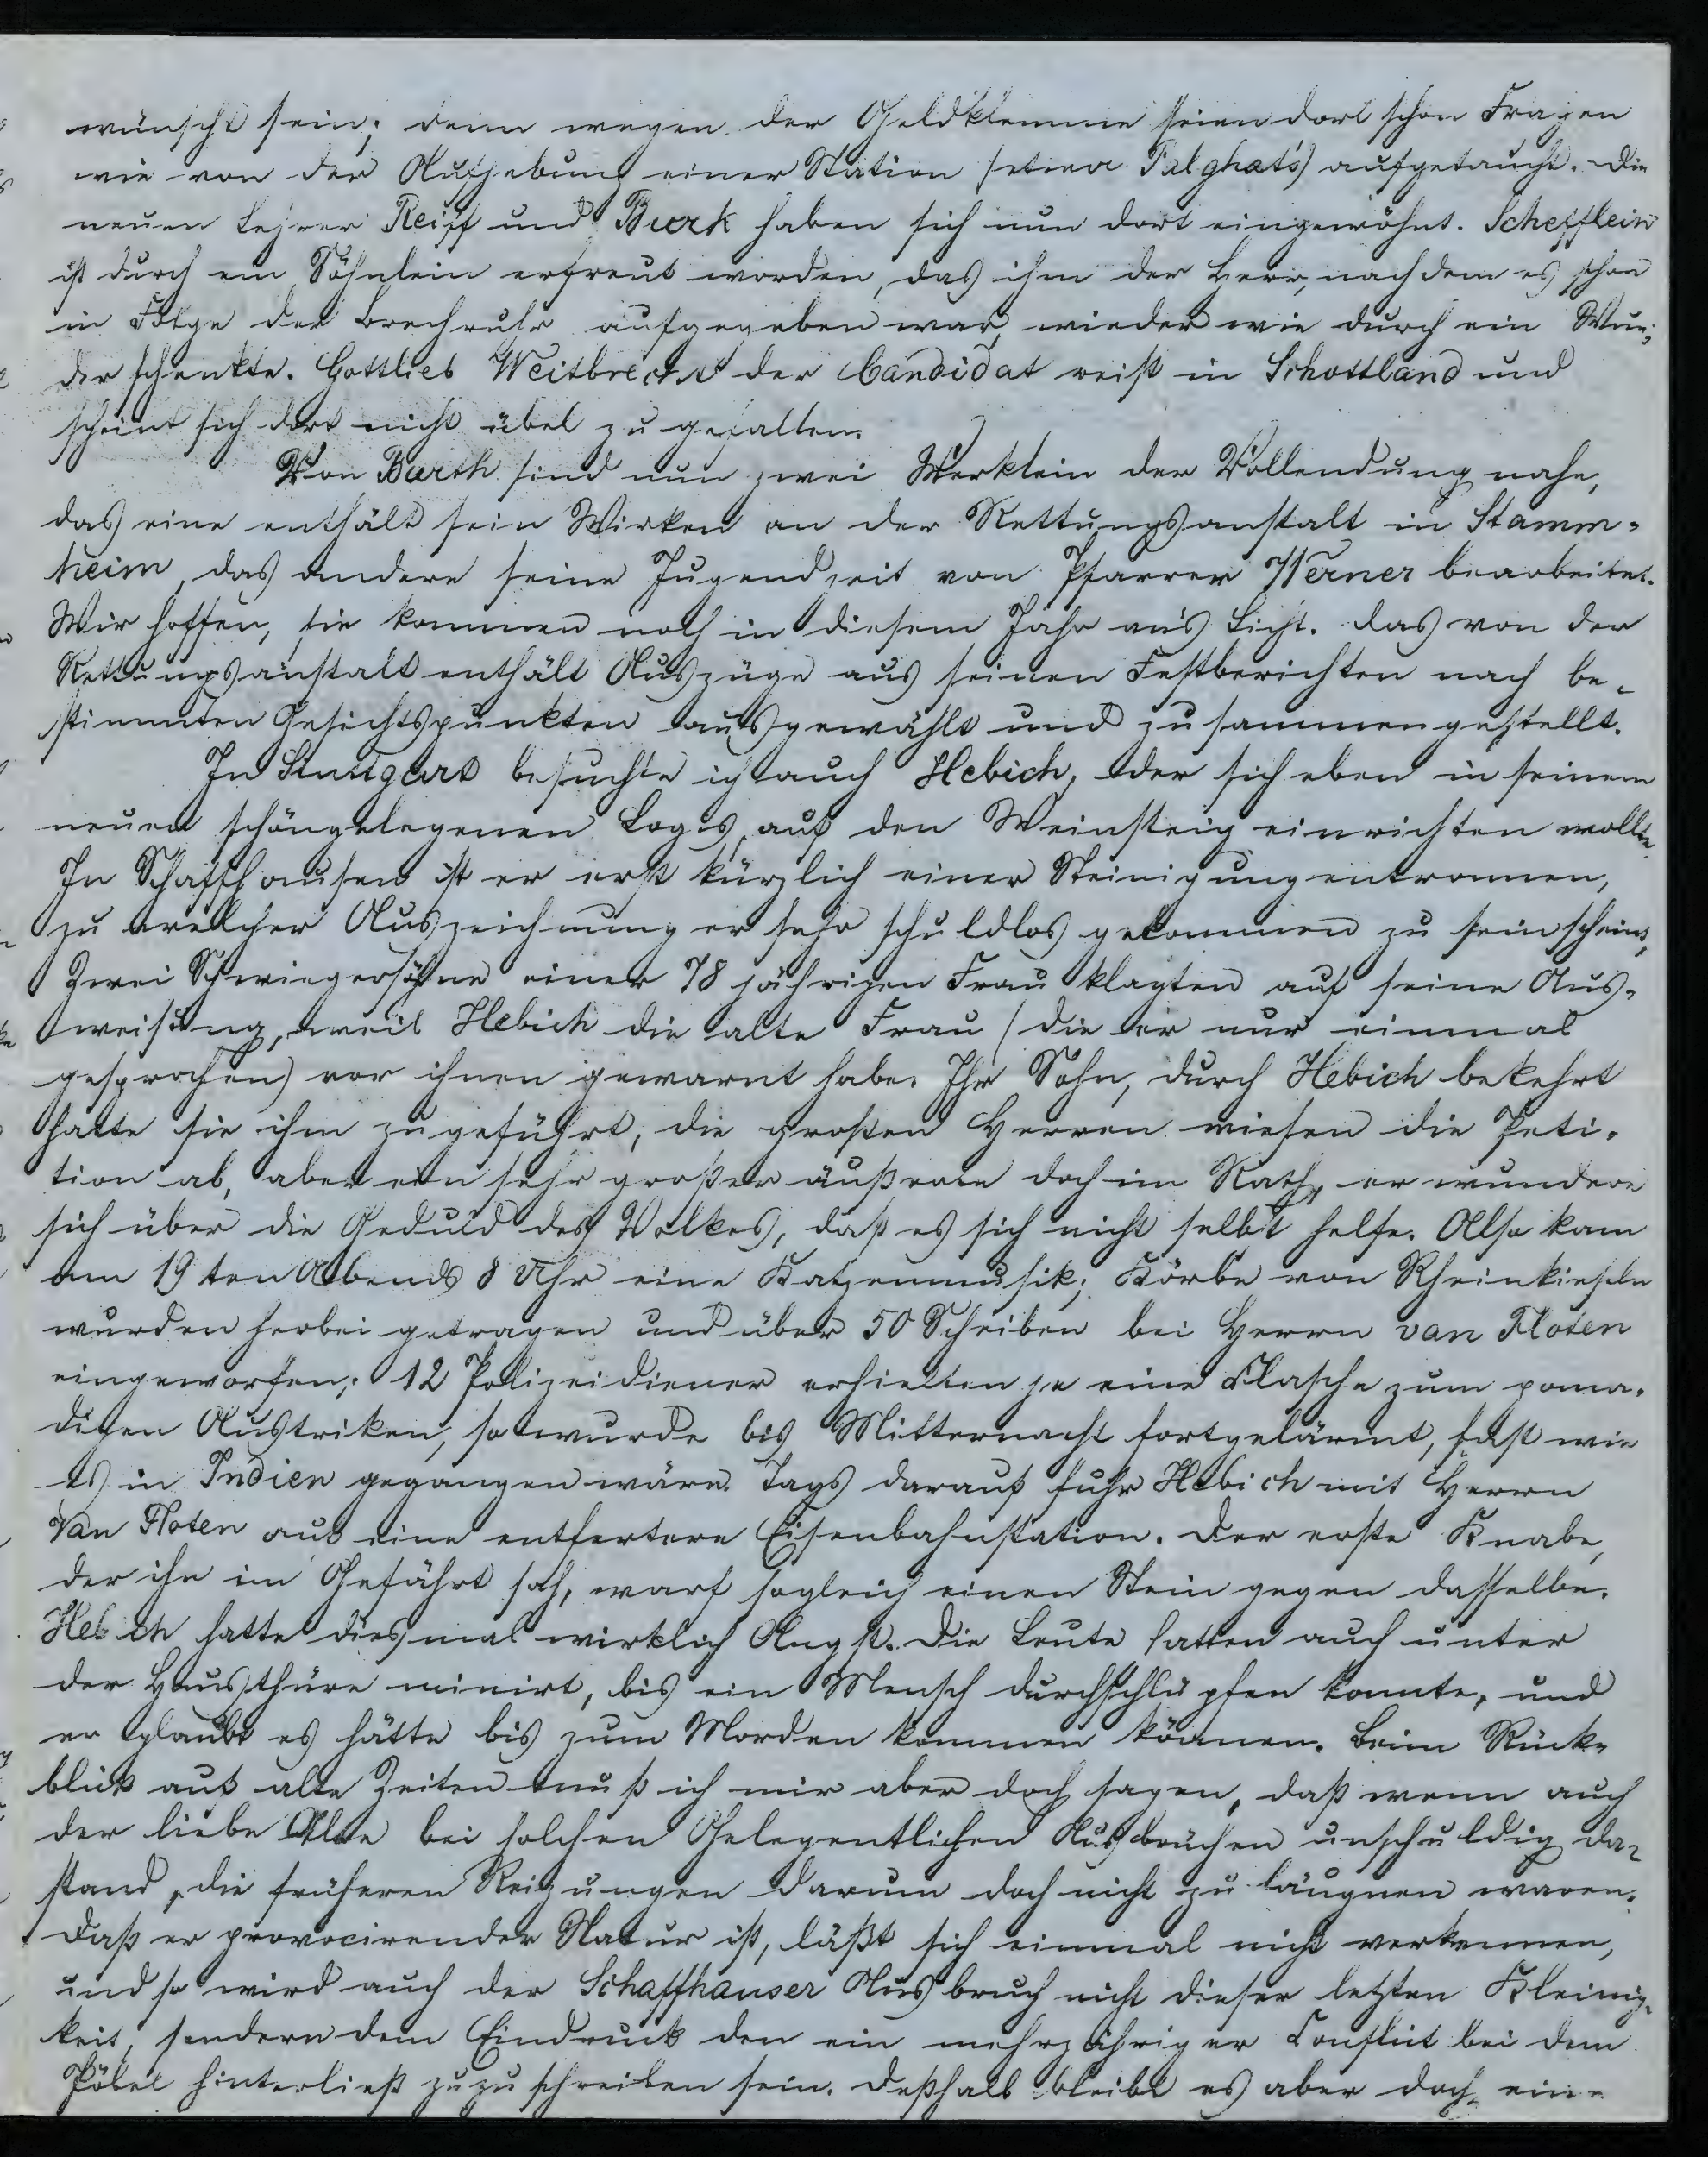 wünscht sein; denn wegen der Geldklemme seien dort schon Fragen
wie von der Aufhebung einer Station (etwa Palghat's) aufgetaucht. Die
neuen Lehrer Reiff und Burk haben sich nun dort eingewöhnt. Schefflein
ist durch ein Söhnlein erfreut worden, das ihm der Herr, nachdem es schon
in Folge der Brechruhr aufgegeben war, wieder wie durch ein Wun-
der schenkte. Gottlieb Weitbrecht der Candidat reist in Schottland und
scheint sich dort nicht übel zu gefallen.
Von Barth sind nun zwei Werklein der Vollendung nahe,
das eine enthält sein Wirken an der Rettungsanstalt in Stamm-
heim, das andere seine Jugendzeit von Pfarrer Werner bearbeitet.
Wir hoffen, sie kommen noch in diesem Jahr an's Licht. Das von der
Rettungsanstalt enthält Auszüge aus seinen Festberichten nach be-
stimmten Gesichtspunkten ausgewählt und zusammengestellt.
In Stuttgart besuchte ich auch Hebich, der sich eben in seinem
neuen schöngelegenen Logis, auf den Weinsteig einrichten wollte.
In Schaffhausen ist er erst kürzlich einer Steinigung entronnen,
zu welcher Auszeichnung er sehr schuldlos gekommen zu sein scheint,
Zwei Schwiegersöhne einer 78 jährigen Frau klagten auf seine Aus-
weisung, weil Hebich die alte Frau (die er nur einmal
gesprochen) vor ihnen gewarnt habe. Ihr Sohn, durch Hebich bekehrt
hatte sie ihm zugeführt, die großen Herren wiesen die Peti-
tion ab, aber ein sehr großer äußerte doch im Rath, er wundere
sich über die Geduld des Volkes, daß es sich nicht selbst helfe. Also kam
am 19ten Abends 8 Uhr eine Katzenmusik; Körbe von Rheinkieseln
wurden herbei getragen und über 50 Scheiben bei Herrn van Floten
eingeworfen; 12 Polizeidiener erhielten je eine Flasche zum poma-
digen Austriken, so wurde bis Mitternacht fortgelärmt, fast wie
es in Indien gegangen wäre. Tags darauf fuhr Hebich mit Herrn
Van Floten auf eine entfertere Eisenbahnstation. Der erste Knabe,
der ihn im Gefährt sah, warf sogleich einen Stein gegen dasselbe.
Hebich hatte diesmal wirklich Angst. Die Leute hatten auch unter
der Hausthüre minirt, bis ein Mensch durchschlüpfen konnte, und
er glaubt es hätte bis zum Morden kommen können. Beim Rück-
blick auf alte Zeiten muß ich mir aber doch sagen, daß wenn auch
der liebe Alte bei solchen Gelegentlichen Ausbrüchen unschuldig da-
stand, die früheren Reizungen darum doch nicht zu läugnen waren.
Daß er provocirender Natur ist, läßt sich einmal nicht verkennen,
und so wird auch der Schaffhauser Ausbruch nicht dieser letzten Kleinig-
keit, sondern dem Eindruck den ein mehrjähriger Conflict bei dem
Pöbel hinterließ zuzuschreiben sein. Deßhalb bleibt es aber doch ein-